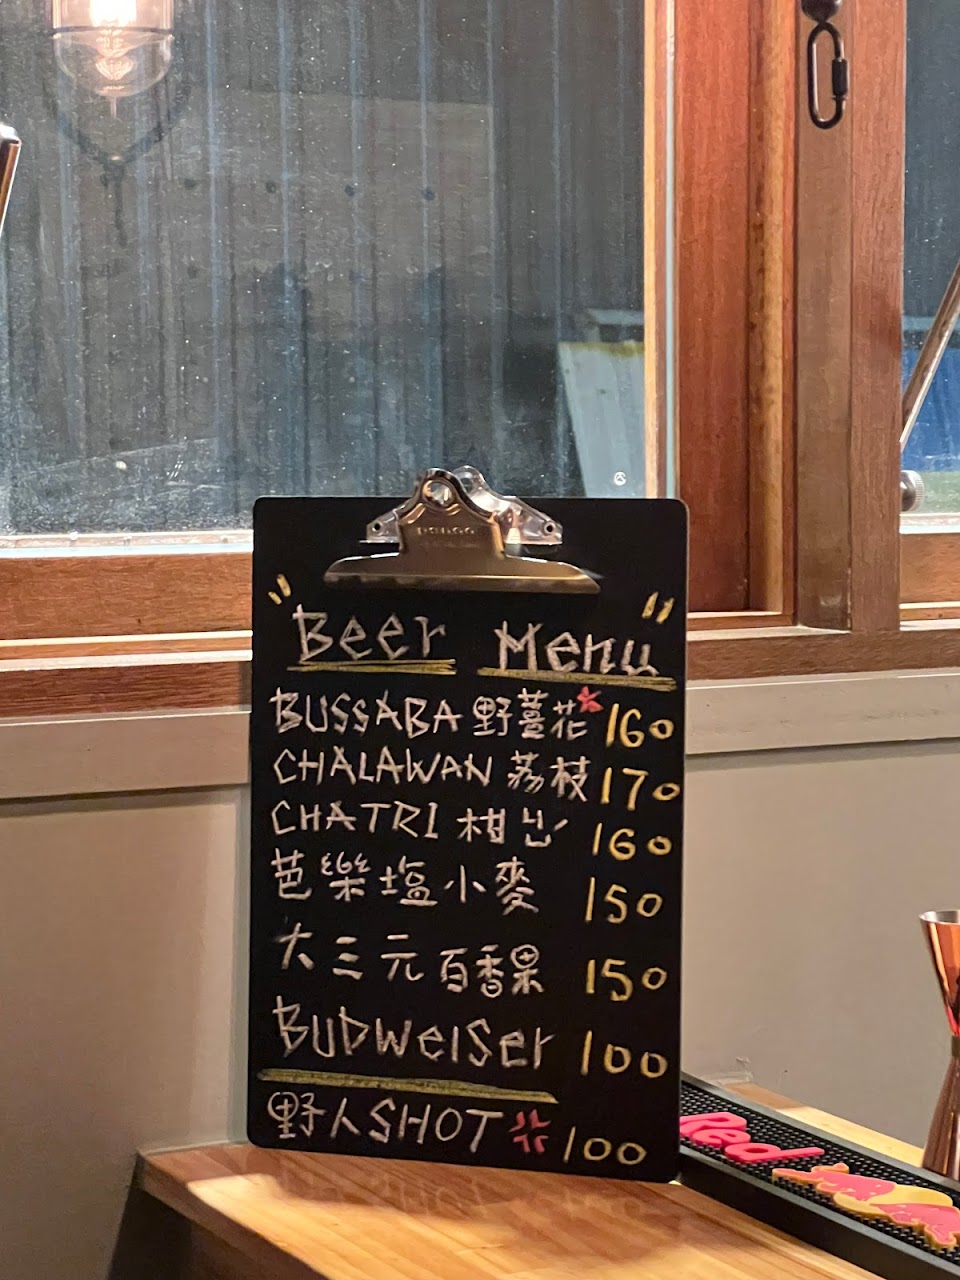 Beer Menu
BUSSABA 野薑花 160
CHALAWAN 荔枝 170
CHATRI 柑 160
芭樂塩小麥 150
大三元百香果 150
BUDWeiSer 100
野人SHOT 100
Red